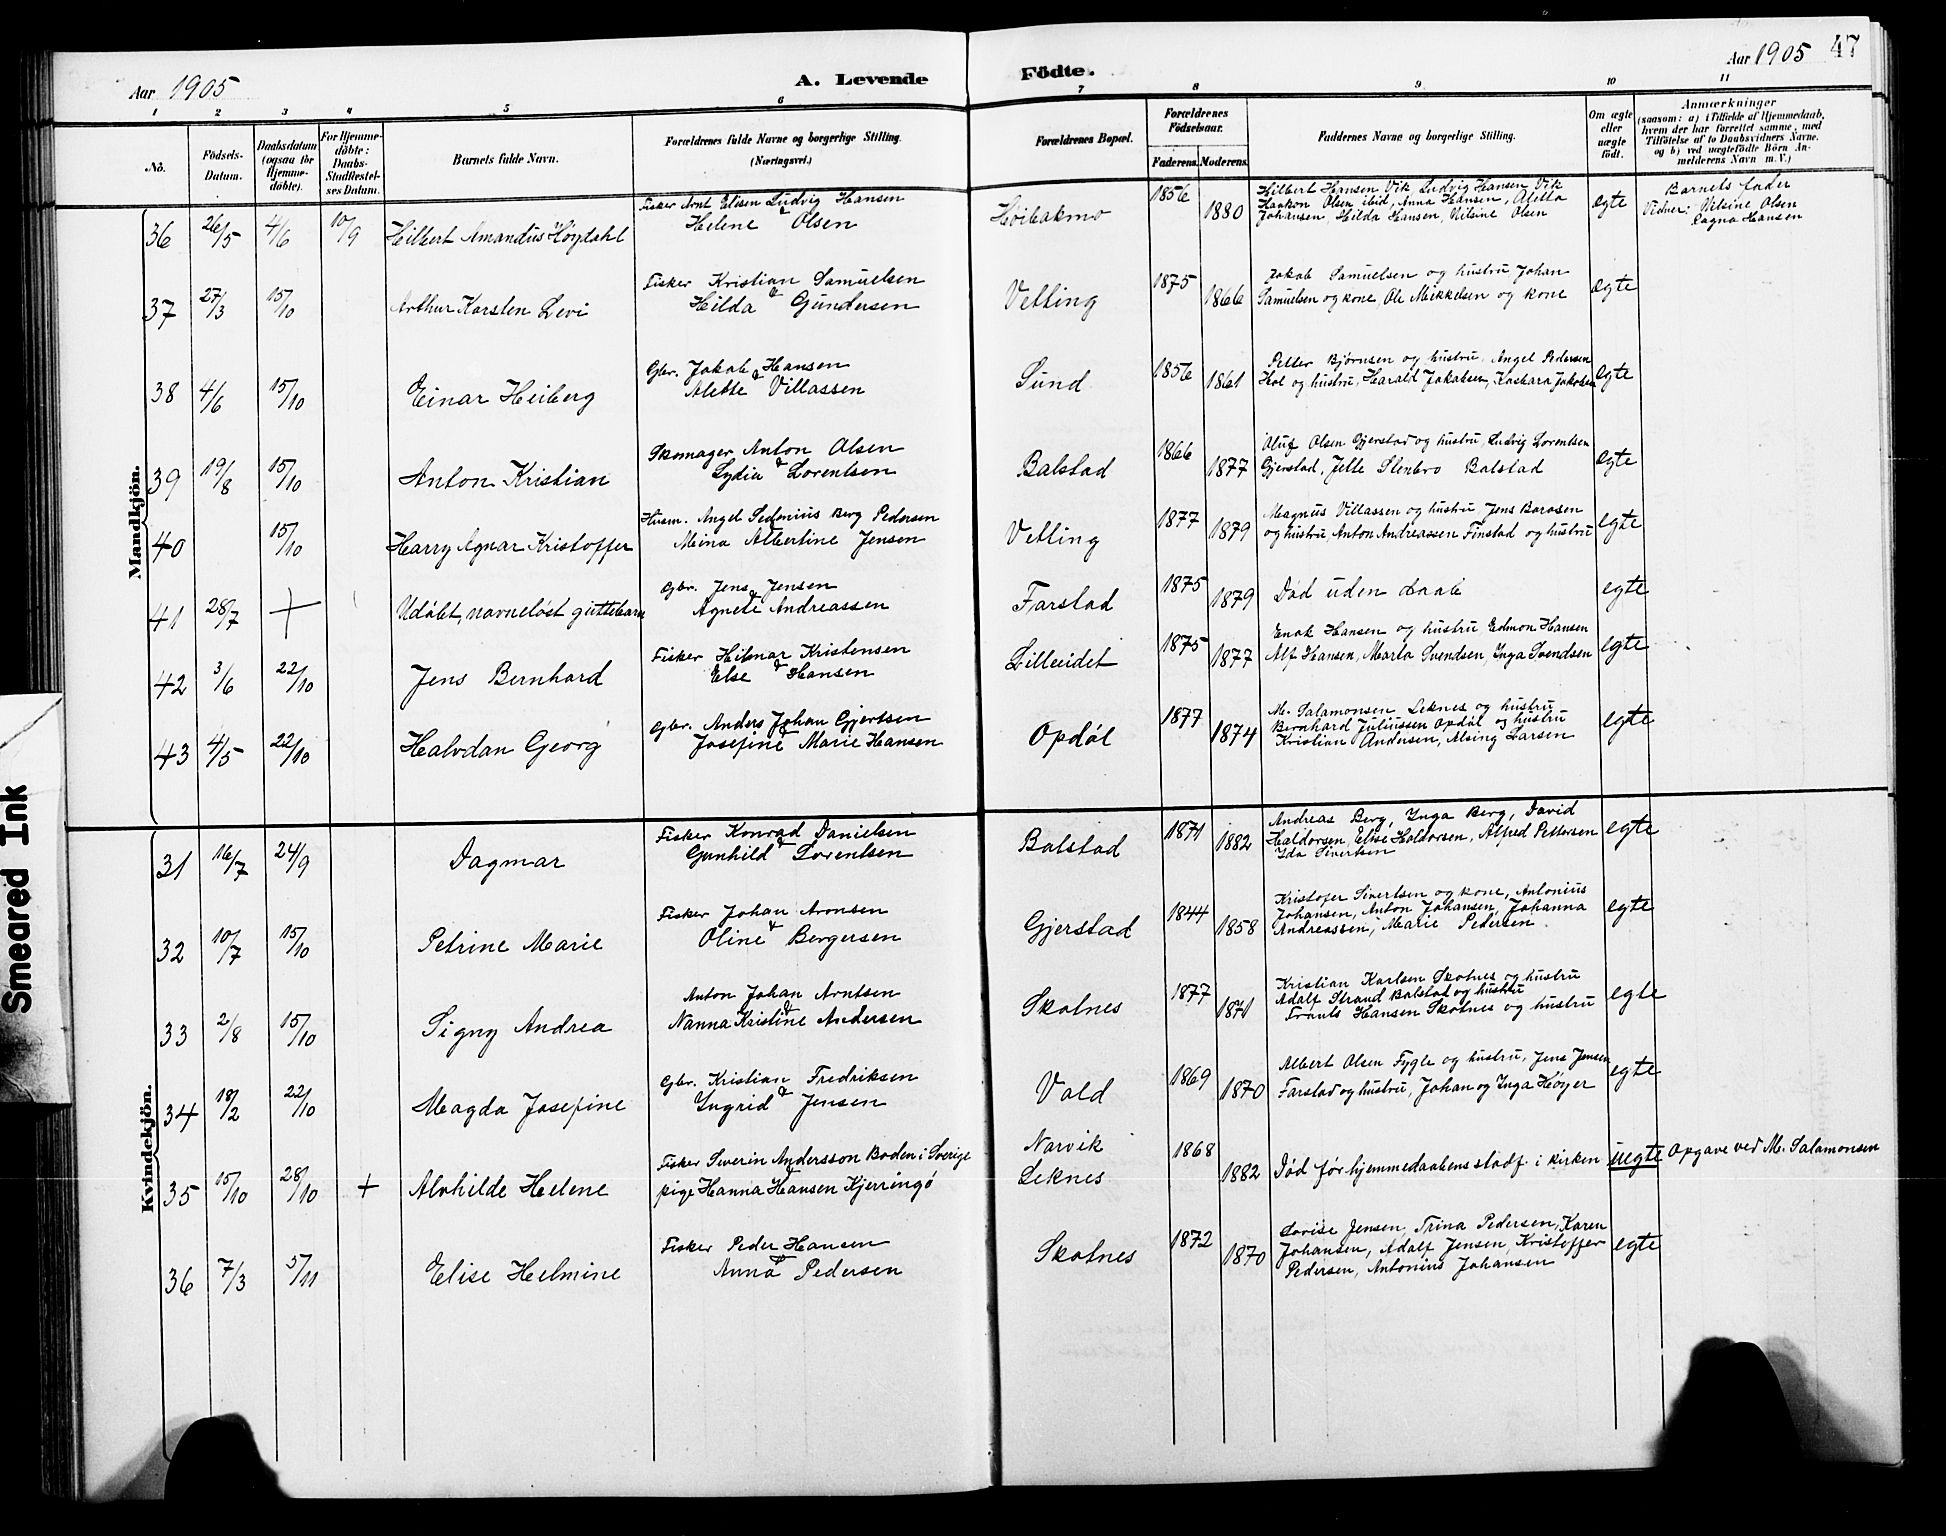 Aar 1905
A. Levende Födte.
Aar 1905 47
1 2 3 4 5 6 7 8 9 10 11
No.
Födsels-Datum.
Daabsdatum (ogsaa for Hjemme-döbte).
For Hjemme-döbte: Daabs-Stadfæstel-ses Datum.
Barnets fulde Navn.
Forældrenes fulde Navne og borgerlige Stilling. (Næringsvei.)
Forældrenes Bopæl.
Forældrenes Födselsaar.
Faderens. Moderens.
Faddernes Navne og borgerlige Stilling.
Om ægte eller uægte födt.
Anmærkninger
(saasom: a) i Tilfælde af Hjemmedaab,
hvem der har forrettet samme, med
Tilföielse af to Daabsvidners Navne.
og b) ved uægtefödte Börn An-
melderens Navn m. V.)
Mandkjön.
36 26/5 4/6 10/9 Hilbert Amandus Høydahl
Fisker Arnt Elisen Ludvig Hansen
& Helene Olsen
Høibakmo 1856 1880
Hilbert Hansen Vik Ludvig Hansen Vik
Haakon Olsen ibid, Anna Hansen, Aletta
Johansen, Hilda Hansen, Nilsine Olsen
egte
Barnets fader
Vidner: Nilsine Olsen
Ragna Hansen
37 27/3 15/10 Arthur Karsten Levi
Fisker Kristian Samuelsen
& Hilda Gundersen
Vetting 1875 1866
Jakob Samuelsen og hustru Johan
Samuelsen og kone, Ole Mikkelsen og kone
egte
38 4/6 15/10 Einar Heiberg
Gbr. Jakob Hansen
& Alette Villassen
Sund 1856 1861
Petter Bjørnsen og hustru, Angel Pedersen
Hol og hustru, Harald Jakobsen, Kasbara Jakobsen
egte
39 19/8 15/10 Anton Kristian
Skomager Anton Olsen
& Lydia Lorentsen
Balstad 1866 1877
Oluf Olsen Gjerstad og hustru, Ludvig Lorentsen
Gjerstad, Jette Stenbro Balstad
egte
40 15/10 Harry Agnar Kristoffer
Husm. Angel Sedonius Berg Pedersen
Mina Albertine Jensen
Vetting 1877 1879
Magnus Villassen og hustru Jens Barosen
og hustru, Anton Andreassen Finstad og hustru
egte
41 28/7 + Udøbt, navneløst guttebarn
Gbr. Jens Jensen
& Agnete Andreassen
Farstad 1875 1879
Død uden daab
egte
42 3/6 22/10 Jens Bernhard
Fisker Hilmar Kristensen
& Else Hansen
Lilleeidet 1875 1877
Enok Hansen og hustru Edmon Hansen
Alf Hansen, Marta Svendsen, Inga Svendsen
egte
43 4/5 22/10 Halvdan Georg
Gbr. Anders Johan Gjertsen
& Josefine Marie Hansen
Opdøl 1877 1874
M. Salamonsen Leknes og hustru
Bernhard Juliussen Opdøl og hustru
Kristian Andersen, Alsing Larsen
egte
Kvindekjön.
31 16/7 24/9 Dagmar
Fisker Konrad Danielsen
& Gunhild Lorentsen
Balstad 1871 1882
Andreas Berg, Inga Berg, David
Haldorsen, Elise Haldorsen, Alfred Pettersen
Ida Sivertsen
egte
32 10/7 15/10 Petrine Marie
Fisker Johan Aronsen
& Oline Bergersen
Gjerstad 1844 1858
Kristofer Sivertsen og kone, Antonius
Johansen, Anton Johansen, Johanna
Andreassen, Marie Pedersen
egte
33 2/8 15/10 Signy Andrea
Anton Johan Arntsen
& Nanna Kristine Andersen
Skotnes 1877 1871
Kristian Karlsen Skotnes og hustru
Adolf Strand Balstad og hustru
Frants Hansen Skotnes og hustru
egte
34 18/2 22/10 Magda Josefine
Gbr. Kristian Fredriksen
& Ingrid Jensen
Vold 1869 1870
Albert Olsen Fygle og hustru, Jens Jensen
Farstad og hustru, Johan og Inga Høyer
egte
35 15/10 28/10 + Alvhilde Helene
Fisker Severin Andersson Boden i Sverige
& pige Hanna Hansen Kjerringö
Narvik
Leknes 1868 1882
Død før hjemmedaabens stadf. i kirken
uegte
Opgave ved M. Salamonsen
36 7/3 5/11 Elise Helmine
Fisker Peder Hansen
& Anna Pedersen
Skotnes 1872 1870
Lovise Jensen, Trina Pedersen, Karen
Johansen, Adolf Jensen, Kristoffer
Pedersen, Antonius Johansen
egte
Smeared Ink